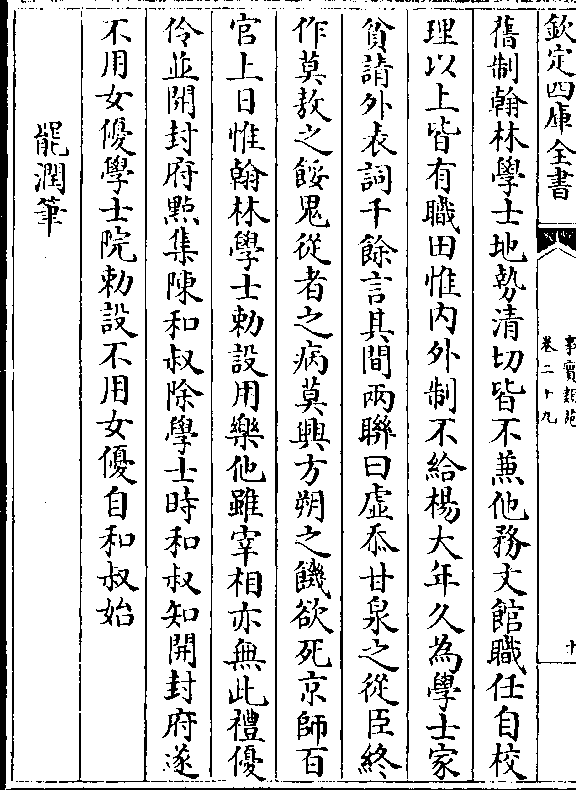 欽定四庫全書
事實類苑
卷二十九
十
舊制翰林學士地勢清切皆不兼他務文館職任自校
理以上皆有職田惟内外制不給楊大年久為學士家
貧請外表詞千餘言其間兩聯曰虛忝甘泉之從臣終
作莫敖之餒鬼從者之病莫興方朔之饑欲死京師百
官上日惟翰林學士勅設用樂他雖宰相亦無此禮優
伶並開封府㸃集陳和叔除學士時和叔知開封府遂
不用女優學士院勅設不用女優自和叔始
罷潤筆